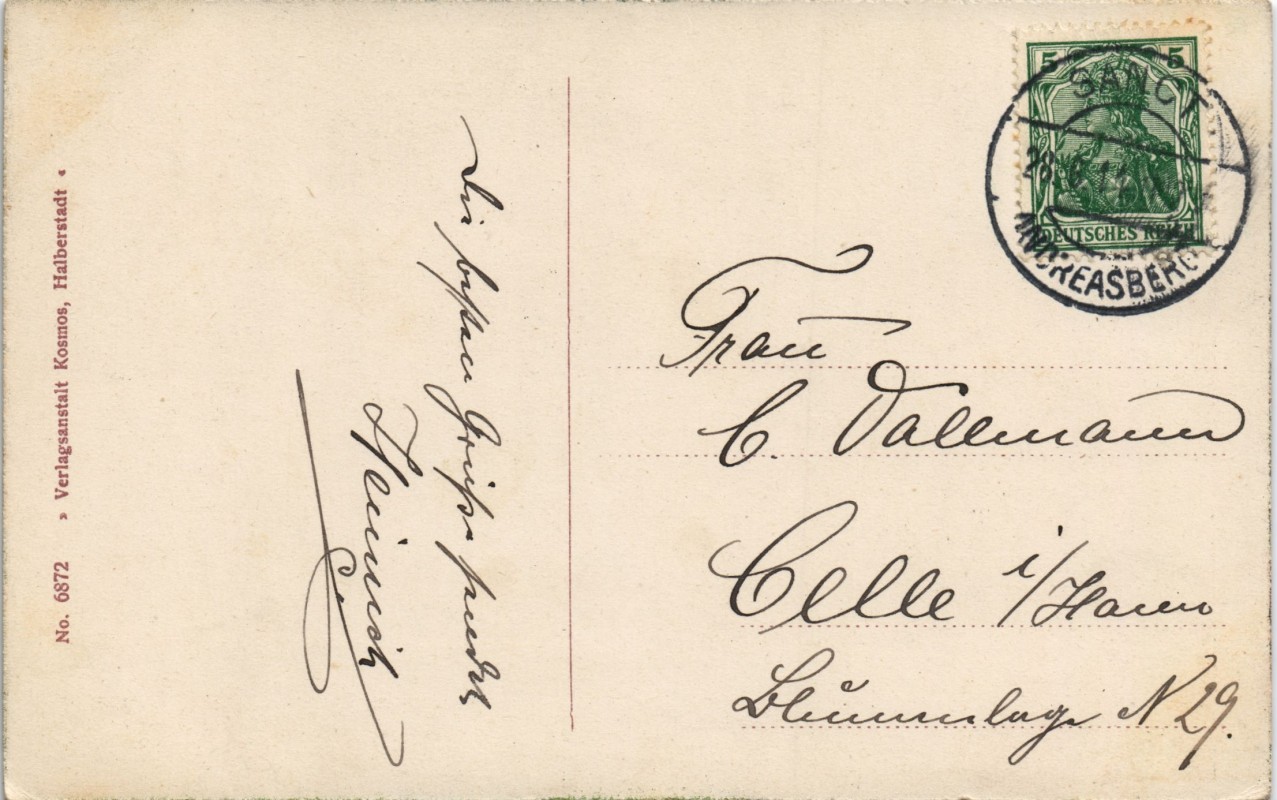 No. 6872 » Verlagsanstalt Kosmos, Halberstadt «
Die besten Grüße sendet
Heinrich
5 5
DEUTSCHES REICH
SANCT
ANDREASBERG
Frau
C. Dallmann
Celle i/Hann
Blumenlage N 29.